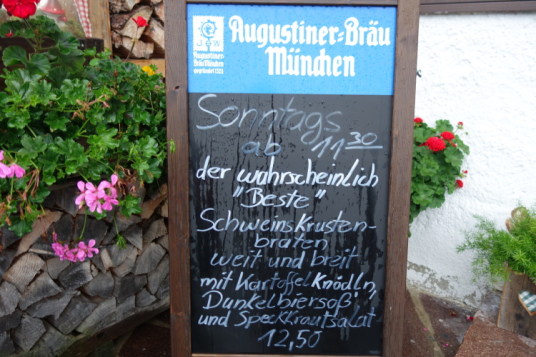 Augustiner-Bräu
München
J W
Augustiner-
Bräu München
gegründet 1328
Sonntags
ab 11 30
der wahrscheinlich
"Beste"
Schweins Krusten-
braten
weit und breit
mit Kartoffel Knödln,
Dunkelbiersoß'
und Speckkrautsalat
12,50